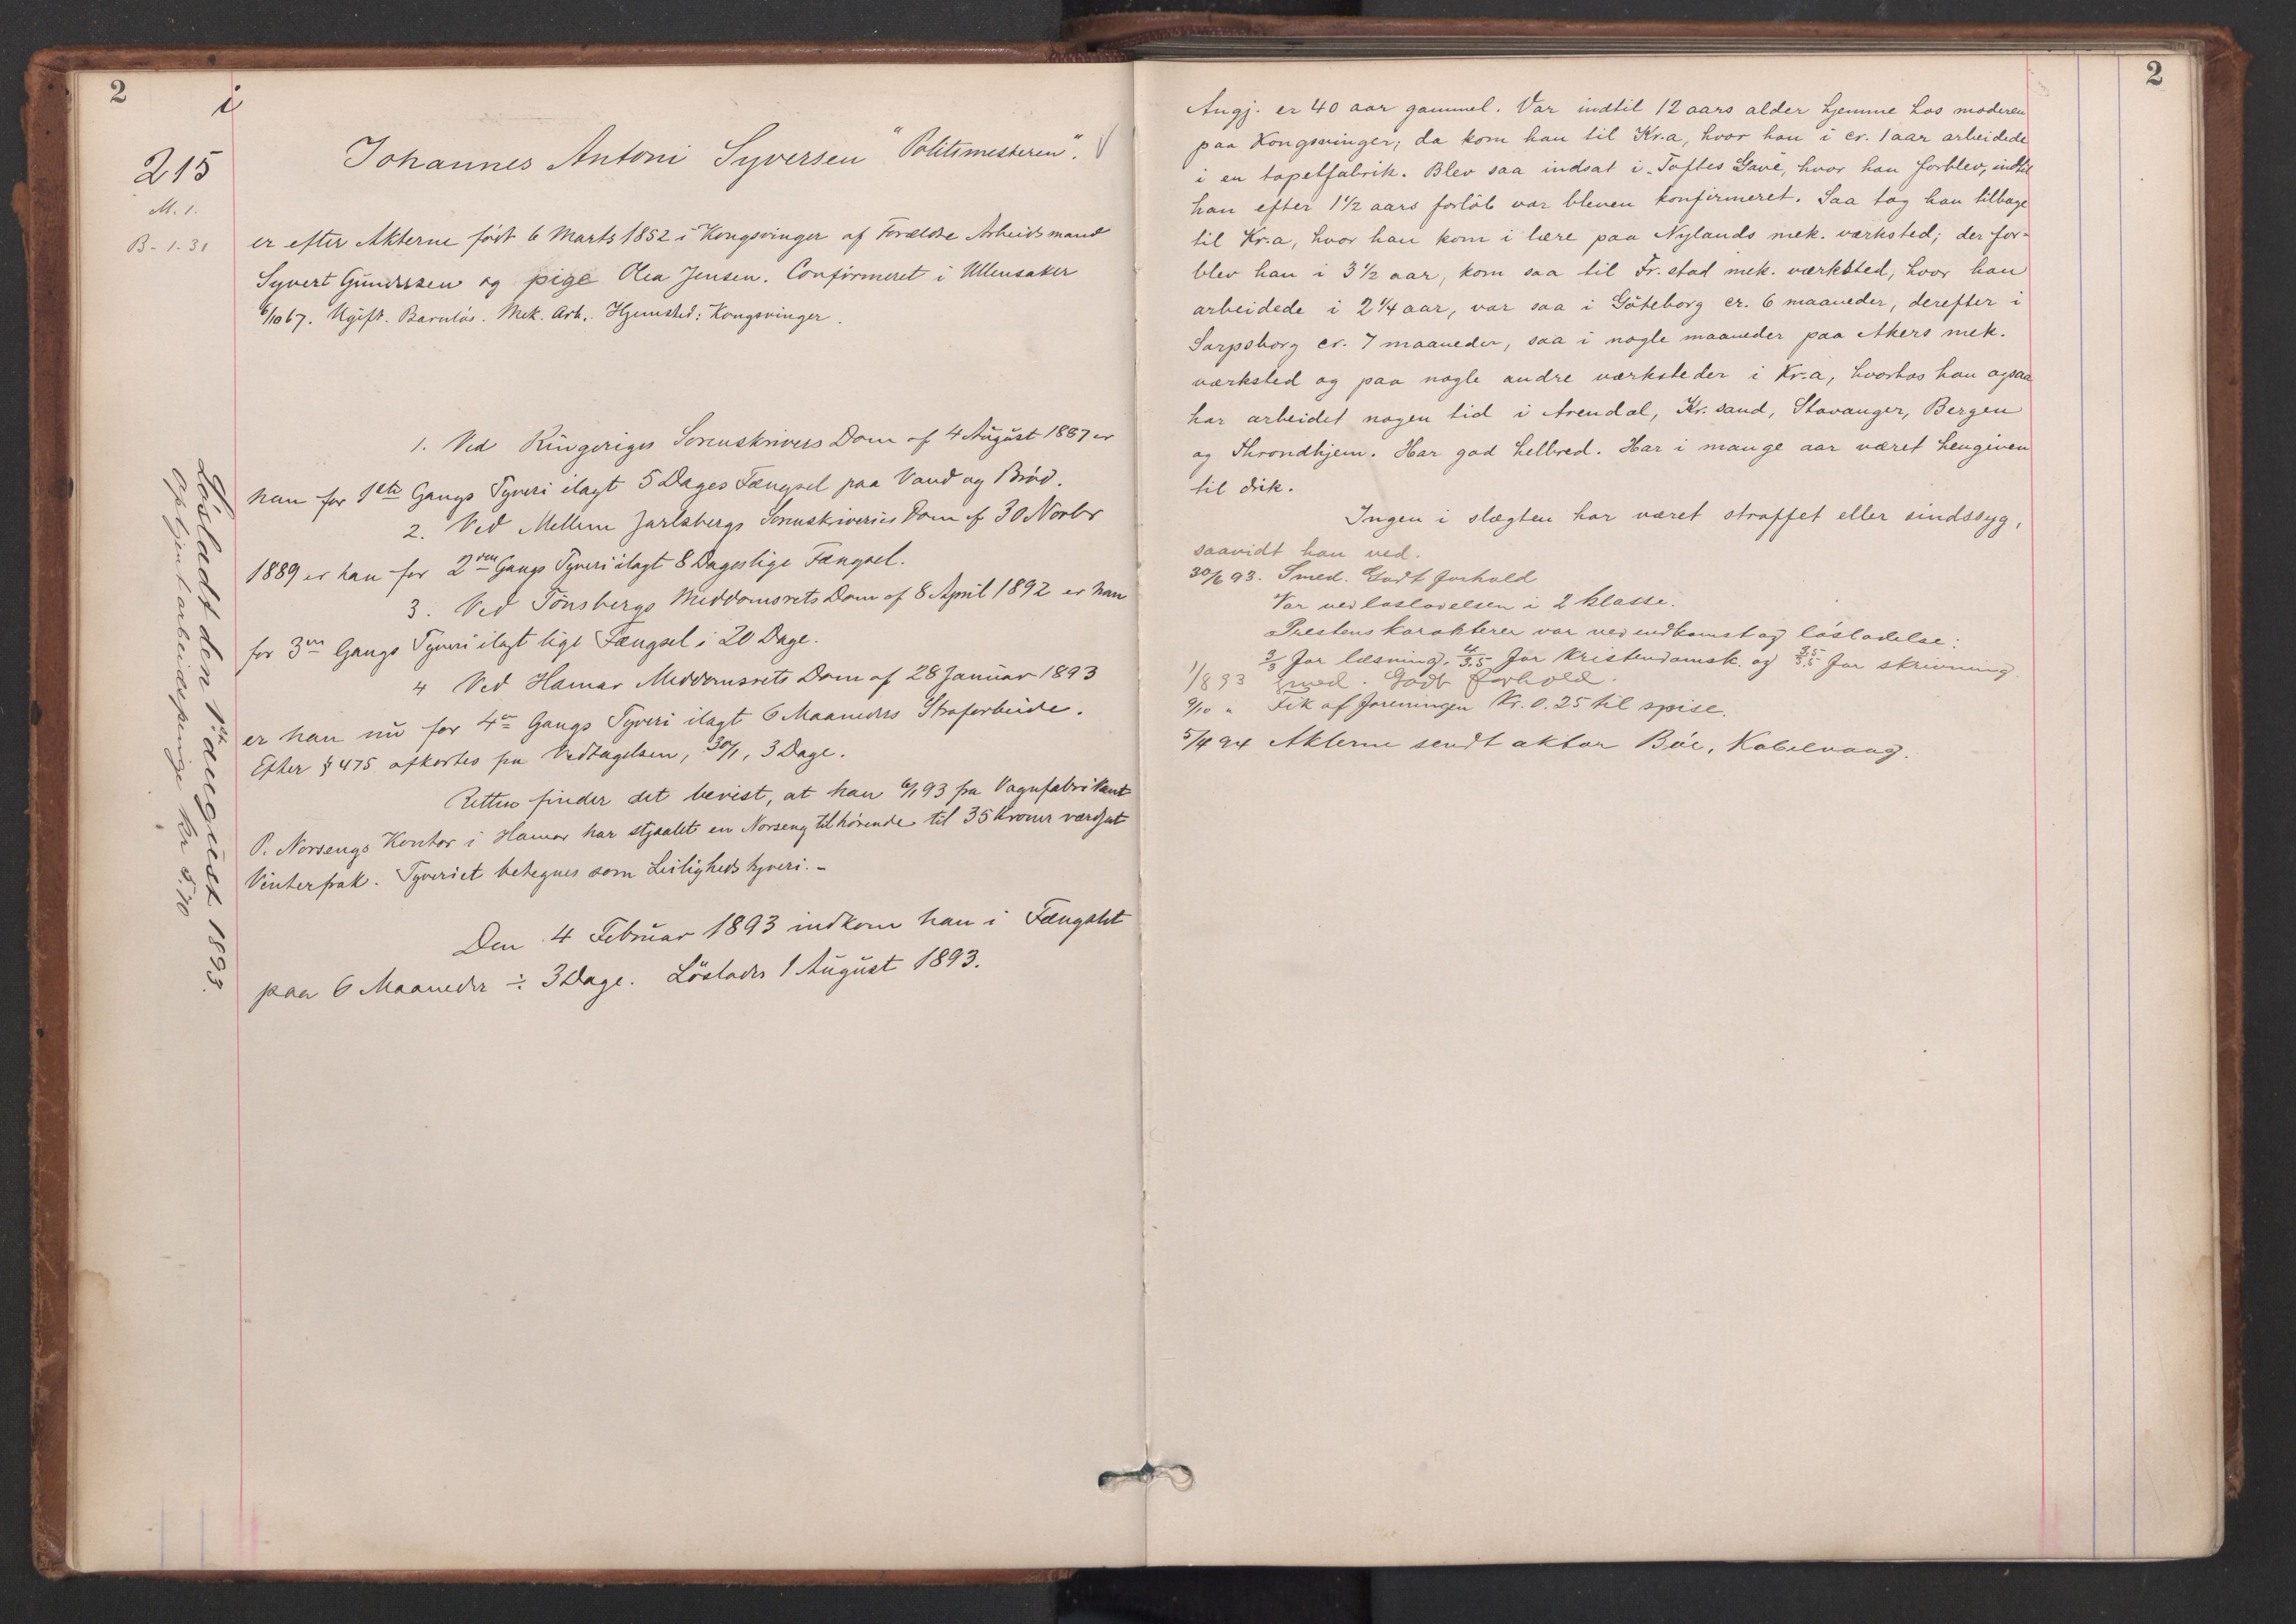 2
i
215
M. 1.
B - 1-31
Johannes Antoni Syversen "Politimesteren".
er efter Akterne født 6 Marts 1852 i Kongsvinger af Forældre Arbeidsmand
Syvert Gundersen og pige Olea Jensen. Confirmeret i Ullensaker
6/10 67. Ugift. Barnløs. Mek. Arb. Hjemsted: Kongsvinger.
1. Ved Ringeriges Sorenskrivers Dom af 4 August 1887 er
han for 1ste Gangs Tyveri ilagt 5 Dages Fængsel paa Vand og Brød.
2. Ved Mellem Jarlsbergs Sorenskriveries Dom af 30 Novbr
1889 er han for 2den Gangs Tyveri ilagt 8 Dages lige Fængsel.
3. Ved Tønsbergs Meddomsrets Dom af 8 April 1892 er han
for 3die Gangs Tyveri ilagt lige Fængsel i 20 Dage.
4 Ved Hamar Meddomsrets Dom af 28 Januar 1893
er han nu for 4de Gangs Tyveri ilagt 6 Maaneders Strafarbeide.
Efter § 475 afkortes fra Vedtagelsen, 30/1, 3 Dage.
Retten finder det bevist, at han 6/1 93 fra Vognfabrikant
P. Norsengs Kontor i Hamar har stjaalet en Norseng tilhørende til 35 Kroner værdsat
Vinterfrak. Tyveriet betegnes som Leilighedstyveri. -
Den 4 Februar 1893 indkom han i Fængslet
paa 6 Maaneder ÷ 3 Dage. Løslades 1 August 1893.
Løsladt den 1ste august 1893.
Optjent arbeidspenge kr 5,70
2
Angj. er 40 aar gammel. Var indtil 12 aars alder hjemme hos moderen
paa Kongsvinger; da kom han til Kr.a, hvor han i cr. 1 aar arbeidede
i en tapetfabrik. Blev saa indsat i Toftes Gave, hvor han forblev, indtil
han efter 1 1/2 aars forløb var bleven konfirmeret. Saa tog han tilbage
til Kr.a, hvor han kom i lære paa Nylands mek. værksted; der for-
blev han i 3 1/2 aar, kom saa til Fr.stad mek. værksted, hvor han
arbeidede i 2 1/4 aar, var saa i Göteborg cr. 6 maaneder, derefter i
Sarpsborg cr. 7 maaneder, saa i nogle maaneder paa Akers mek.
værksted og paa nogle andre værksteder i Kr.a, hvorhos han ogsaa
har arbeidet nogen tid i Arendal, Kr.sand, Stavanger, Bergen
og Throndhjem. Har god helbred. Har i mange aar været hengiven
til drik.
Ingen i slægten har været straffet eller sindssyg,
saavidt han ved.
30/6 93. Smed. Godt forhold
Var ved løsladelsen i 2 klasse.
Prestens karakterer var ved indkomst og løsladelse:
3/3 for læsning, 4/3.5 for kristendomsk. og 3.5/3.5 for skrivning.
1/8 93 Smed. Godt forhold.
9/10 " Fik af foreningen Kr. 0.25 til spise.
5/4 94 Akterne sendt aktor Bøe, Kabelvaag.